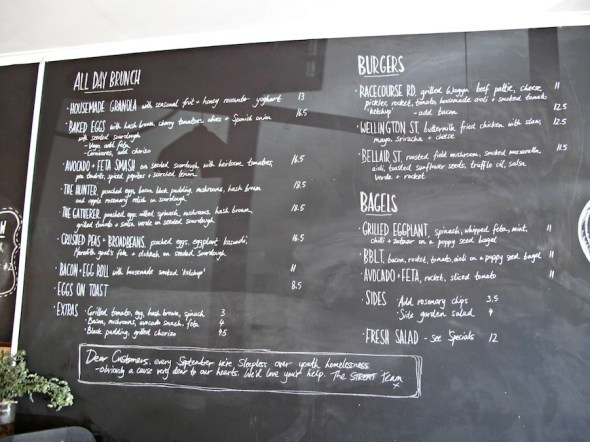 ALL DAY BRUNCH
· HOUSEMADE GRANOLA with seasonal fruit + honey rosewater yoghurt 13
· BAKED EGGS with hash brown, cherry tomatoes, olives + Spanish onion 16.5
with seeded sourdough
- Vegos add feta
- Carnivores add chorizo
· AVOCADO + FETA SMASH on seeded sourdough with heirloom tomatoes, 16.5
pea tendrils, spiced pepitas +
· THE HUNTER, poached egg, bacon, black pudding, mushrooms, hash brown 18.5
and apple rosemary relish on sourdough
· THE GATHERER, poached egg, wilted spinach, mushrooms, hash brown, 18.5
grilled tomato + salsa verde on seeded sourdough
· CRUSHED PEAS + BROADBEANS, poached eggs, eggplant kasundi, 16.5
Meredith goat's feta + dukkah on seeded sourdough
· BACON + EGG ROLL with housemade smoked 'ketchup' 11
· EGGS ON TOAST 8.5
· EXTRAS · Grilled tomato, egg, hash brown, spinach 3
· Bacon, mushrooms, avocado smash, feta 4
· Black pudding, grilled chorizo 4.5
Dear Customers, every September we're Sleepless over youth homelessness
- obviously a cause very dear to our hearts. We'd love your help. The STREAT team
x
BURGERS
· RACECOURSE RD, grilled Wagyu beef pattie, cheese, 11
pickles, rocket, tomato, housemade aioli + smoked tomato
'ketchup' - add bacon 12.5
· WELLINGTON ST, buttermilk fried chicken with slaw, 12.5
mayo, sriracha + cheese
· BELLAIR ST, roasted field mushroom, smoked mozzarella, 11.5
aioli, toasted sunflower seeds, truffle oil, salsa
verde + rocket
BAGELS
· GRILLED EGGPLANT, spinach, whipped feta, mint, 11
chilli + on a poppy seed bagel
· BBLT, bacon, rocket, tomato, aioli on a poppy seed bagel 11
· AVOCADO + FETA, rocket, sliced tomato 11
· SIDES · Add rosemary chips 3.5
· Side garden salad 4
· FRESH SALAD - see Specials 12